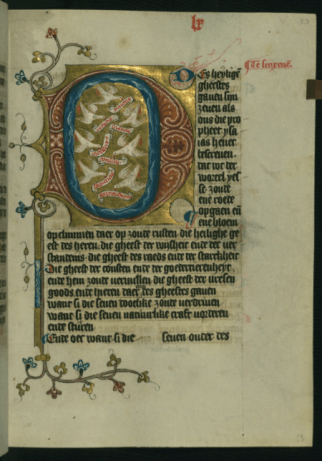 lv
¶ Te sexten.
Des heylige
gheestes
gauen sijn
zeuen als
ons die pro
pheet ysa
ias heuet
bescreuen.
dat wt der
wortel yes
se zoude
ene roede
opgaen en
ene bloem
opclimmen daer op zoude rusten die heilighe ge
est des heren. die gheest der wijsheit ende der ver
standenis. die gheest des raeds ende der starcheit
Die gheest der consten ende der goedertierenheyt.
ende hem zoude veruullen die gheest der vresen
goods. ende heren daer des gheestes gauen
want si die seuen doetlike zonde verdriuen
want si die seuen natuurlike craft vorderen
ende stueren
Ende oec want si die seuen onder des